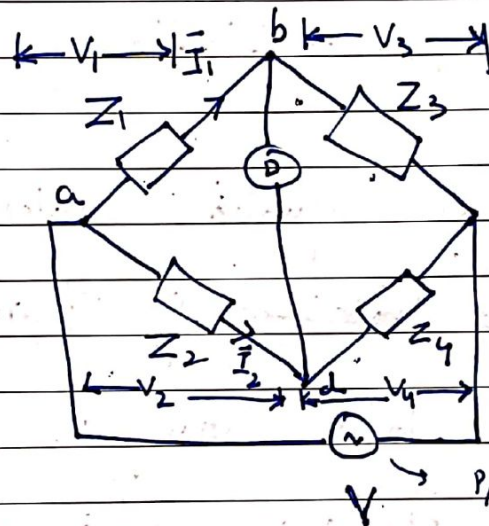 b
V₁ I⃗₁ V₃
Z₁ Z₃
D
a
Z₂ I⃗₂ d Z₄
V₂ V₄
~
V